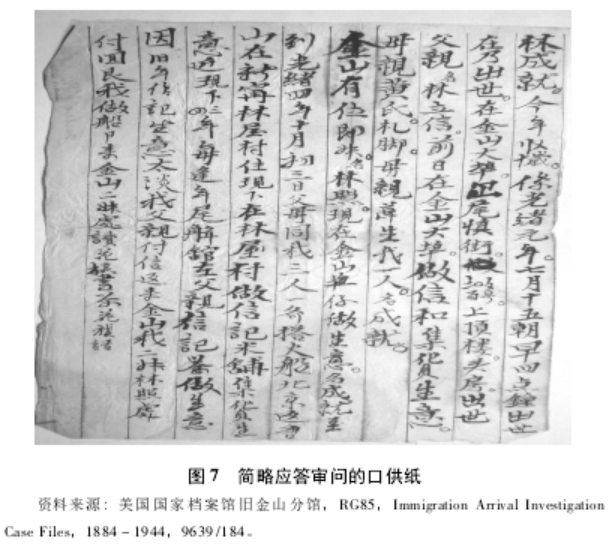 林成就。今年收歲。係光緒元年七月十五朝早四点鐘出世
在乃出世。在金山大埠 尾慎街 上頂楼头房。出世
父親名林立信。前日在金山大埠。做信和集貨生意。
母親黄氏札脚。母親單生我一人。名成就。
金山有位即叔名林熙。现在金山單仔做生意。名成就
到光緒四年十月初三日父母同我三人一齐搭公船北京
山在新寧林屋村住现下在林屋村做信記米舖集貨生
意近现下三年每逢年尾解舘左父親信記 做生意
因旧年信記生意太淡我父親付信返来金山我二叔林熙處
付回艮我做船卩来金山二叔處讀花旗書 花旗話
图7 简略应答审问的口供纸
资料来源：美国国家档案馆旧金山分馆，RG85，Immigration Arrival Investigation
Case Files，1884－1944，9639/184。